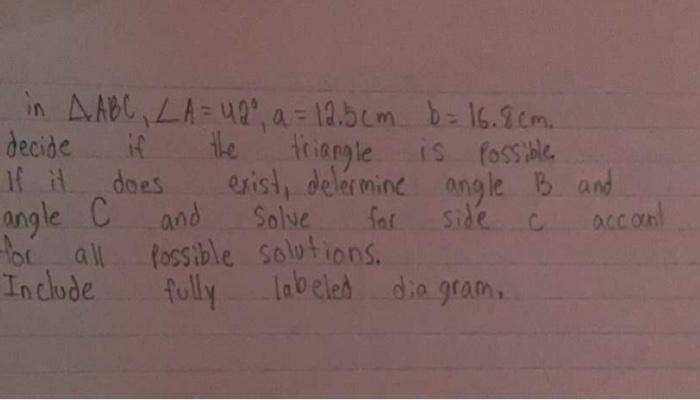 in △ABC, ∠A = 42°, a = 12.5cm b = 16.8cm.
decide if the triangle is possible
If it does exist, determine angle B and
angle C and solve for side c account
for all possible solutions.
Include fully labeled diagram.